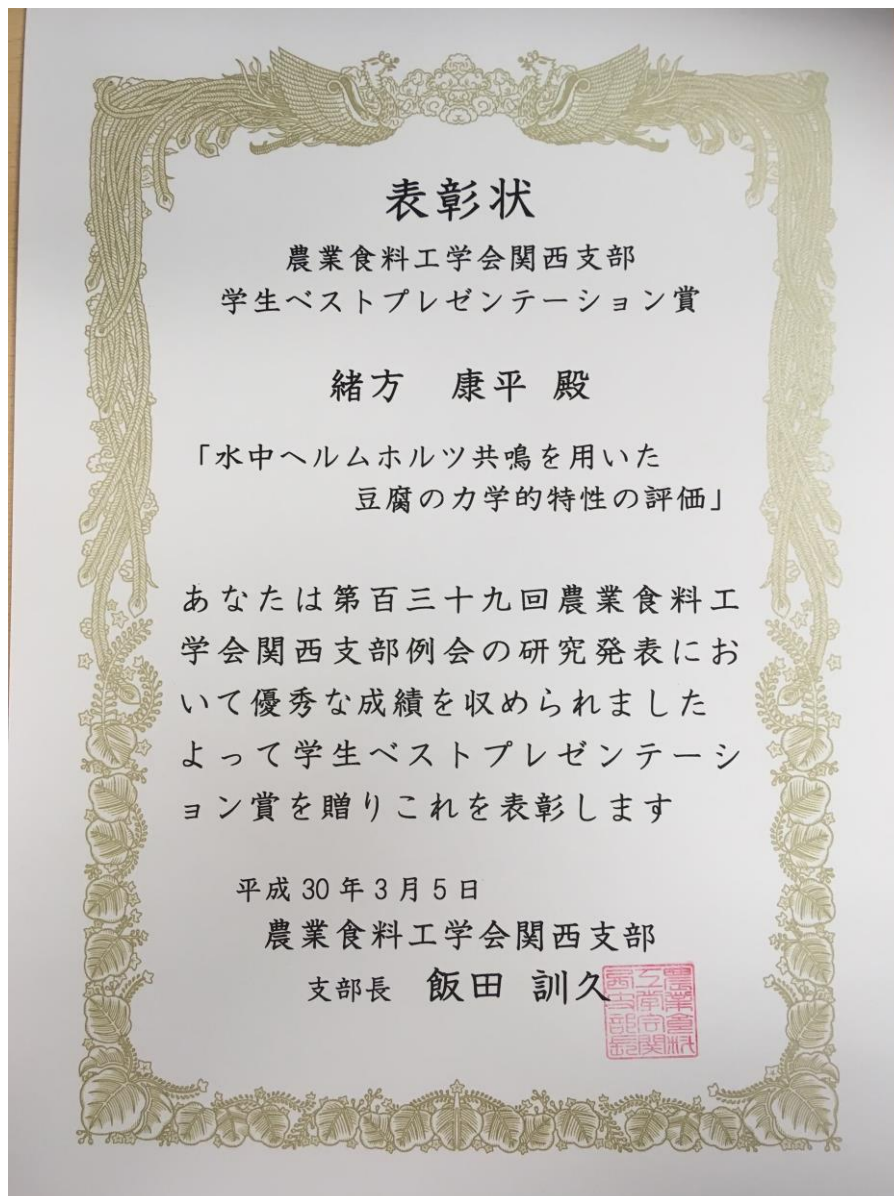 表彰状
農業食料工学会関西支部
学生ベストプレゼンテーション賞
緒方　康平 殿
「水中ヘルムホルツ共鳴を用いた
豆腐の力学的特性の評価」
あなたは第百三十九回農業食料工
学会関西支部例会の研究発表にお
いて優秀な成績を収められました
よって学生ベストプレゼンテーシ
ョン賞を贈りこれを表彰します
平成30年3月5日
農業食料工学会関西支部
支部長　飯田 訓久